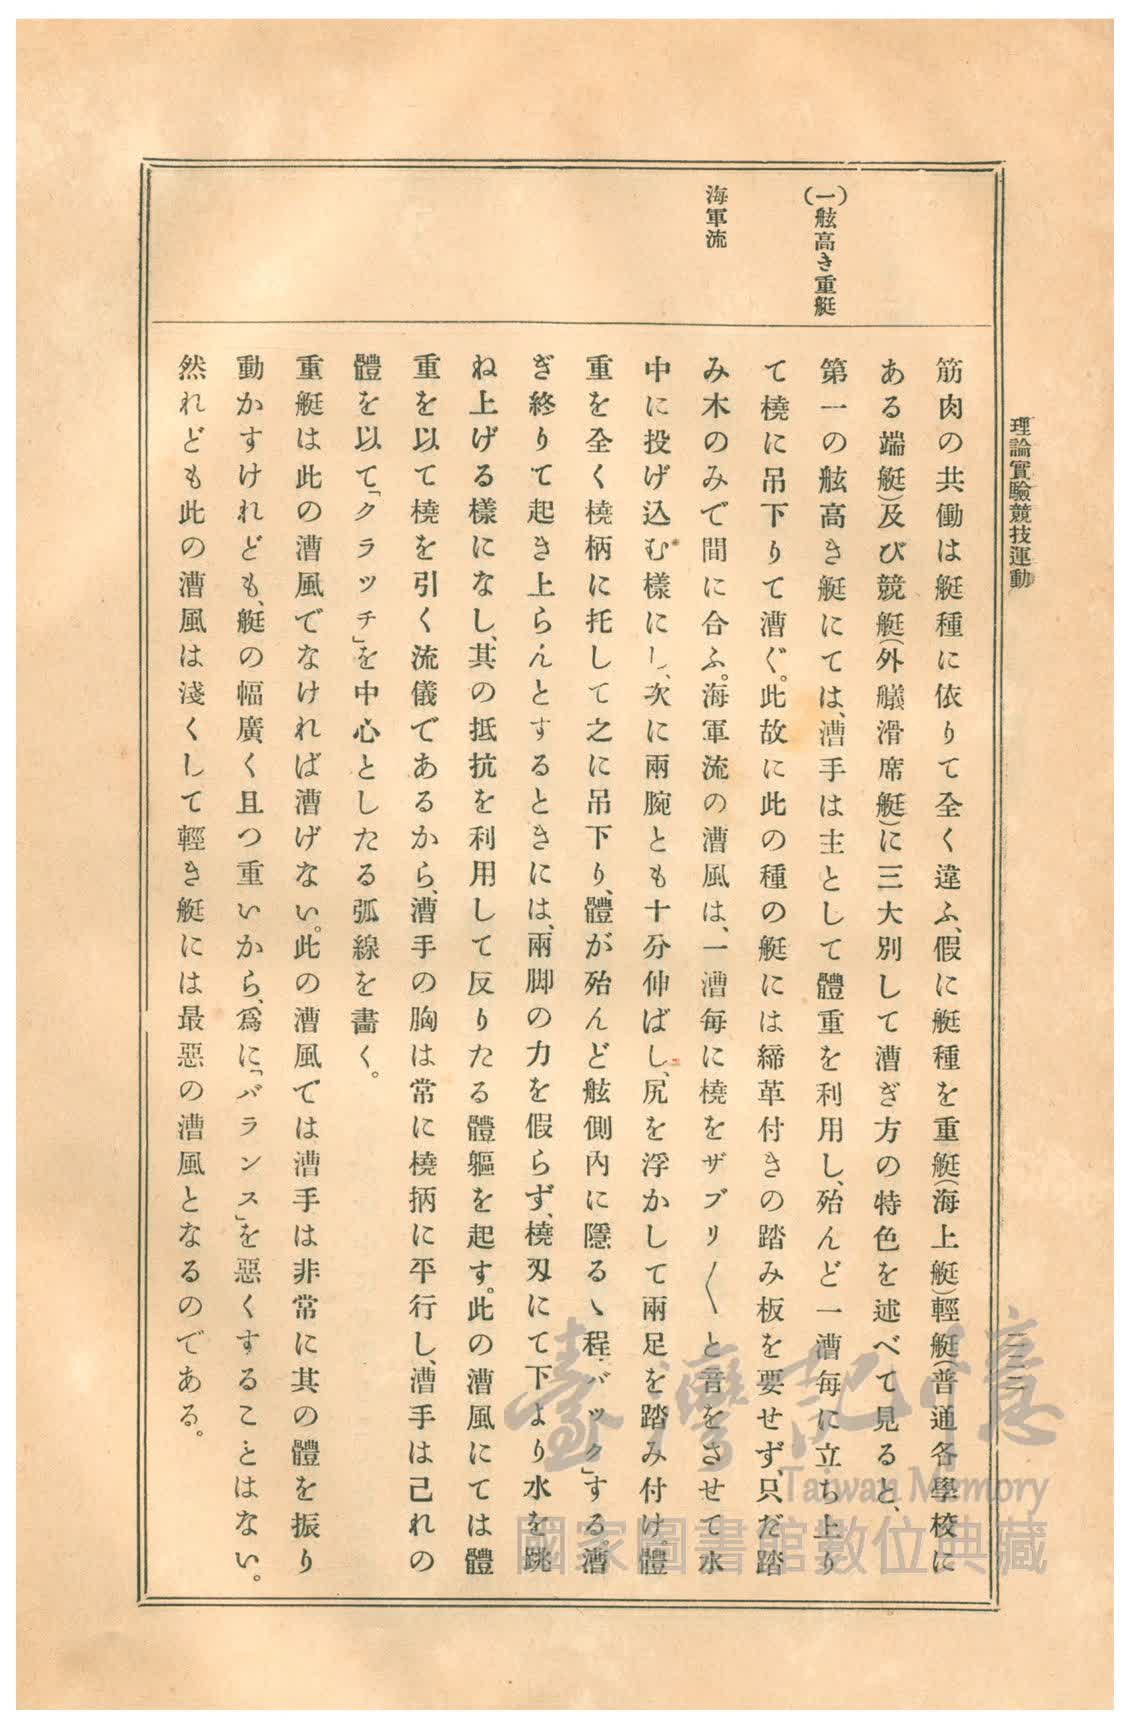 理論實驗競技運動
(一)舷高き重艇
海軍流
筋肉の共働は艇種に依りて全く違ふ、假に艇種を重艇(海上艇)輕艇(普通各學校に
ある端艇)及び競艇(外艤滑席艇)に三大別して漕ぎ方の特色を述べて見ると、
第一の舷高き艇にては、漕手は主として體重を利用し、殆んど一漕每に立ち上り
て橈に吊下りて漕ぐ。此故に此の種の艇には締革付きの踏み板を要せず、只だ踏
み木のみで間に合ふ。海軍流の漕風は、一漕每に橈をザブリ〱と音をさせて水
中に投げ込む樣にし、次に兩腕とも十分伸ばし、尻を浮かして兩足を踏み付け、體
重を全く橈柄に托して之に吊下り、體が殆んど舷側內に隱るゝ程「バック」する。漕
ぎ終りて起き上らんとするときには、兩脚の力を假らず、橈刄にて下より水を跳
ね上げる樣になし、其の抵抗を利用して反りたる體軀を起す。此の漕風にては體
重を以て橈を引く流儀であるから、漕手の胸は常に橈柄に平行し、漕手は己れの
體を以て「クラッチ」を中心としたる弧線を畵く。
重艇は此の漕風でなければ漕げない。此の漕風では漕手は非常に其の體を振り
動かすけれども、艇の幅廣く且つ重いから、爲に「バランス」を惡くすることはない。
然れども此の漕風は淺くして輕き艇には最惡の漕風となるのである。
臺灣記憶
Taiwan Memory
國家圖書館數位典藏